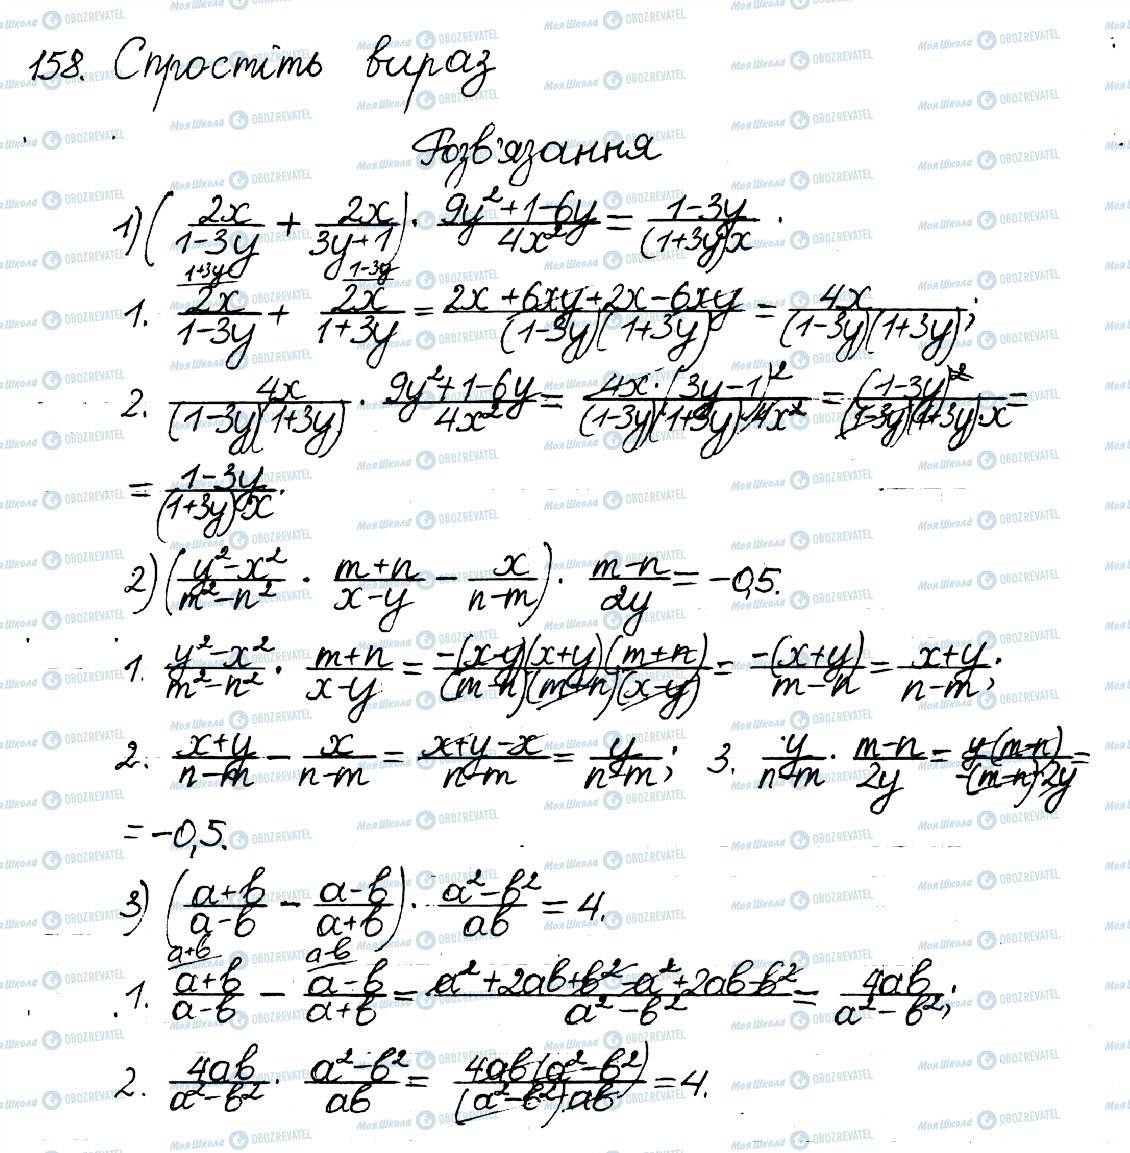 158. Спростіть вираз
Розв'язання
1) (2x/(1-3y) + 2x/(3y+1)) · (9y²+1-6y)/(4x²) = (1-3y)/((1+3y)x).
1. 2x/(1-3y) (1+3y) + 2x/(1+3y) (1-3y) = (2x+6xy+2x-6xy)/((1-3y)(1+3y)) = 4x/((1-3y)(1+3y));
2. 4x/((1-3y)(1+3y)) · (9y²+1-6y)/(4x²) = (4x·(3y-1)²)/((1-3y)(1+3y)·4x²) = (1-3y)²/((1-3y)(1+3y)·x) =
= (1-3y)/((1+3y)·x).
2) ((y²-x²)/(m²-n²) · (m+n)/(x-y) - x/(n-m)) · (m-n)/(2y) = -0,5.
1. (y²-x²)/(m²-n²) · (m+n)/(x-y) = (-(x-y)(x+y)(m+n))/((m-n)(m+n)(x-y)) = (-(x+y))/(m-n) = (x+y)/(n-m);
2. (x+y)/(n-m) - x/(n-m) = (x+y-x)/(n-m) = y/(n-m); 3. y/(n-m) · (m-n)/(2y) = (y(m-n))/(-(m-n)·2y) =
= -0,5.
3) ((a+b)/(a-b) - (a-b)/(a+b)) · (a²-b²)/(ab) = 4.
1. (a+b)/(a-b) (a+b) - (a-b)/(a+b) (a-b) = (a²+2ab+b²-a²+2ab-b²)/(a²-b²) = 4ab/(a²-b²);
2. 4ab/(a²-b²) · (a²-b²)/(ab) = (4ab(a²-b²))/((a²-b²)·ab) = 4.
Моя Школа OBOZREVATEL